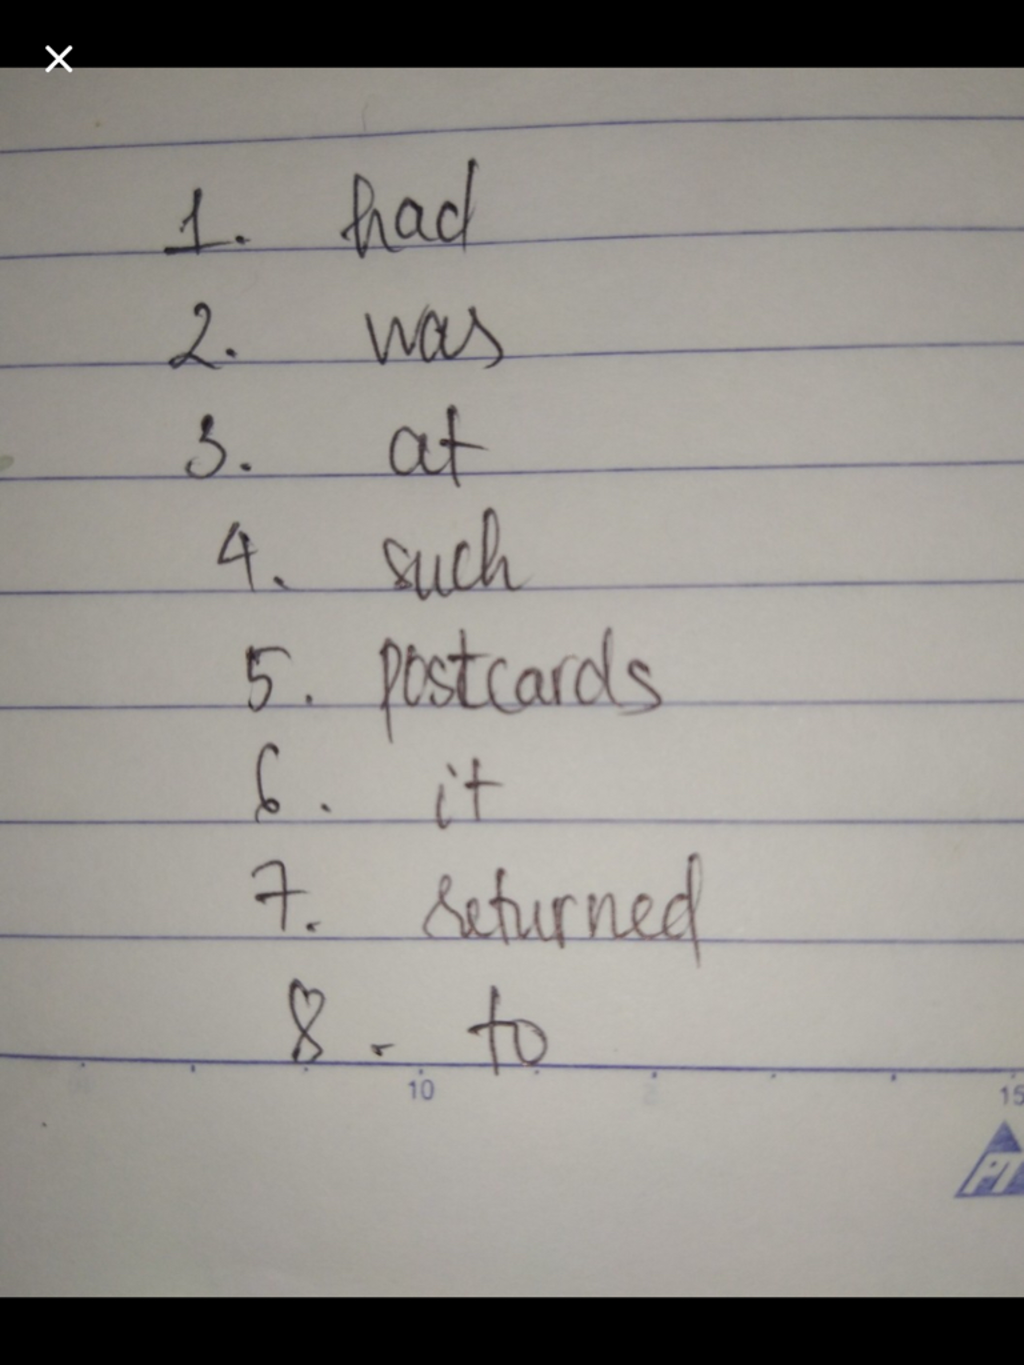 1. had
2. was
3. at
4. such
5. postcards
6. it
7. returned
8. to
10
15
PT